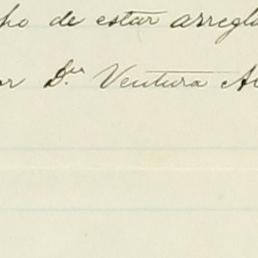 de estar arregla
Dn. Ventura A